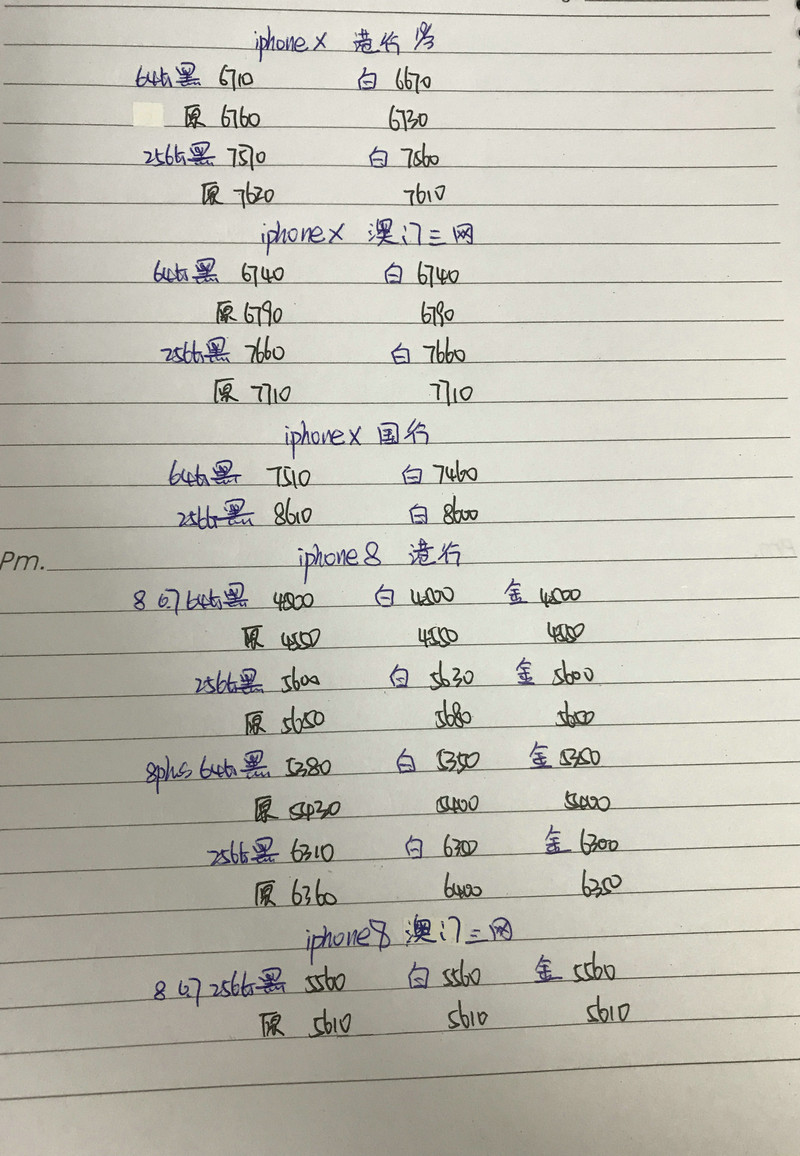 iphone X 港行
64G黑 6710 白 6670
原 6760 6730
256G黑 7570 白 7560
原 7620 7610
iphone X 澳门三网
64G黑 6740 白 6740
原 6790 6790
256G黑 7660 白 7660
原 7710 7710
iphone X 国行
64G黑 7510 白 7460
256G黑 8610 白 8600
Pm.
iphone 8 港行
8 4.7 64G黑 4500 白 4500 金 4500
原 4550 4550 4550
256G黑 5600 白 5630 金 5600
原 5650 5680 5650
8plus 64G黑 5380 白 5350 金 5350
原 5430 5400 5400
256G黑 6310 白 6300 金 6300
原 6360 6400 6350
iphone 8 澳门三网
8 4.7 256G黑 5560 白 5560 金 5560
原 5610 5610 5610